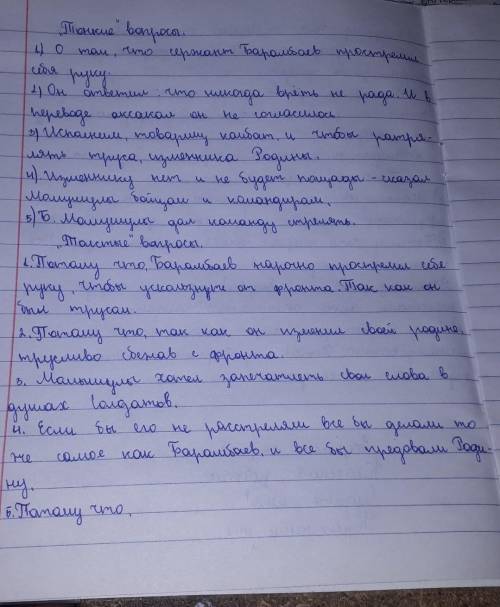 „Тонкие" вопросы.
1) О том, что сержант Барамбаев прострелил
себе руку.
2) Он ответил: что никогда врать не рада. И в
переводе аксакал он не согласилось
3) Исполняем, товарищ камбат, и чтобы растре-
лять труса, изменника Родины.
4) Изменнику нет и не будет пощады - сказал
Момушулы бойцам и командирам.
5) Б. Момушулы дал команду стрелять.
„Толстые" вопросы.
1. Потому что, Барамбаев нарочно прострелил себе
руку, чтобы ускользнуть от фронта. Так как он
был трусом.
2. Потому что, так как он изменил своей родине,
трусливо сбежав с фронта.
3. Момышулы хотел запечатлеть свои слова в
душах солдатов.
4. Если бы его не расстреляли все бы делали то
же самое как Барамбаев, и все бы предавали Роди-
ну.
5. Потому что,